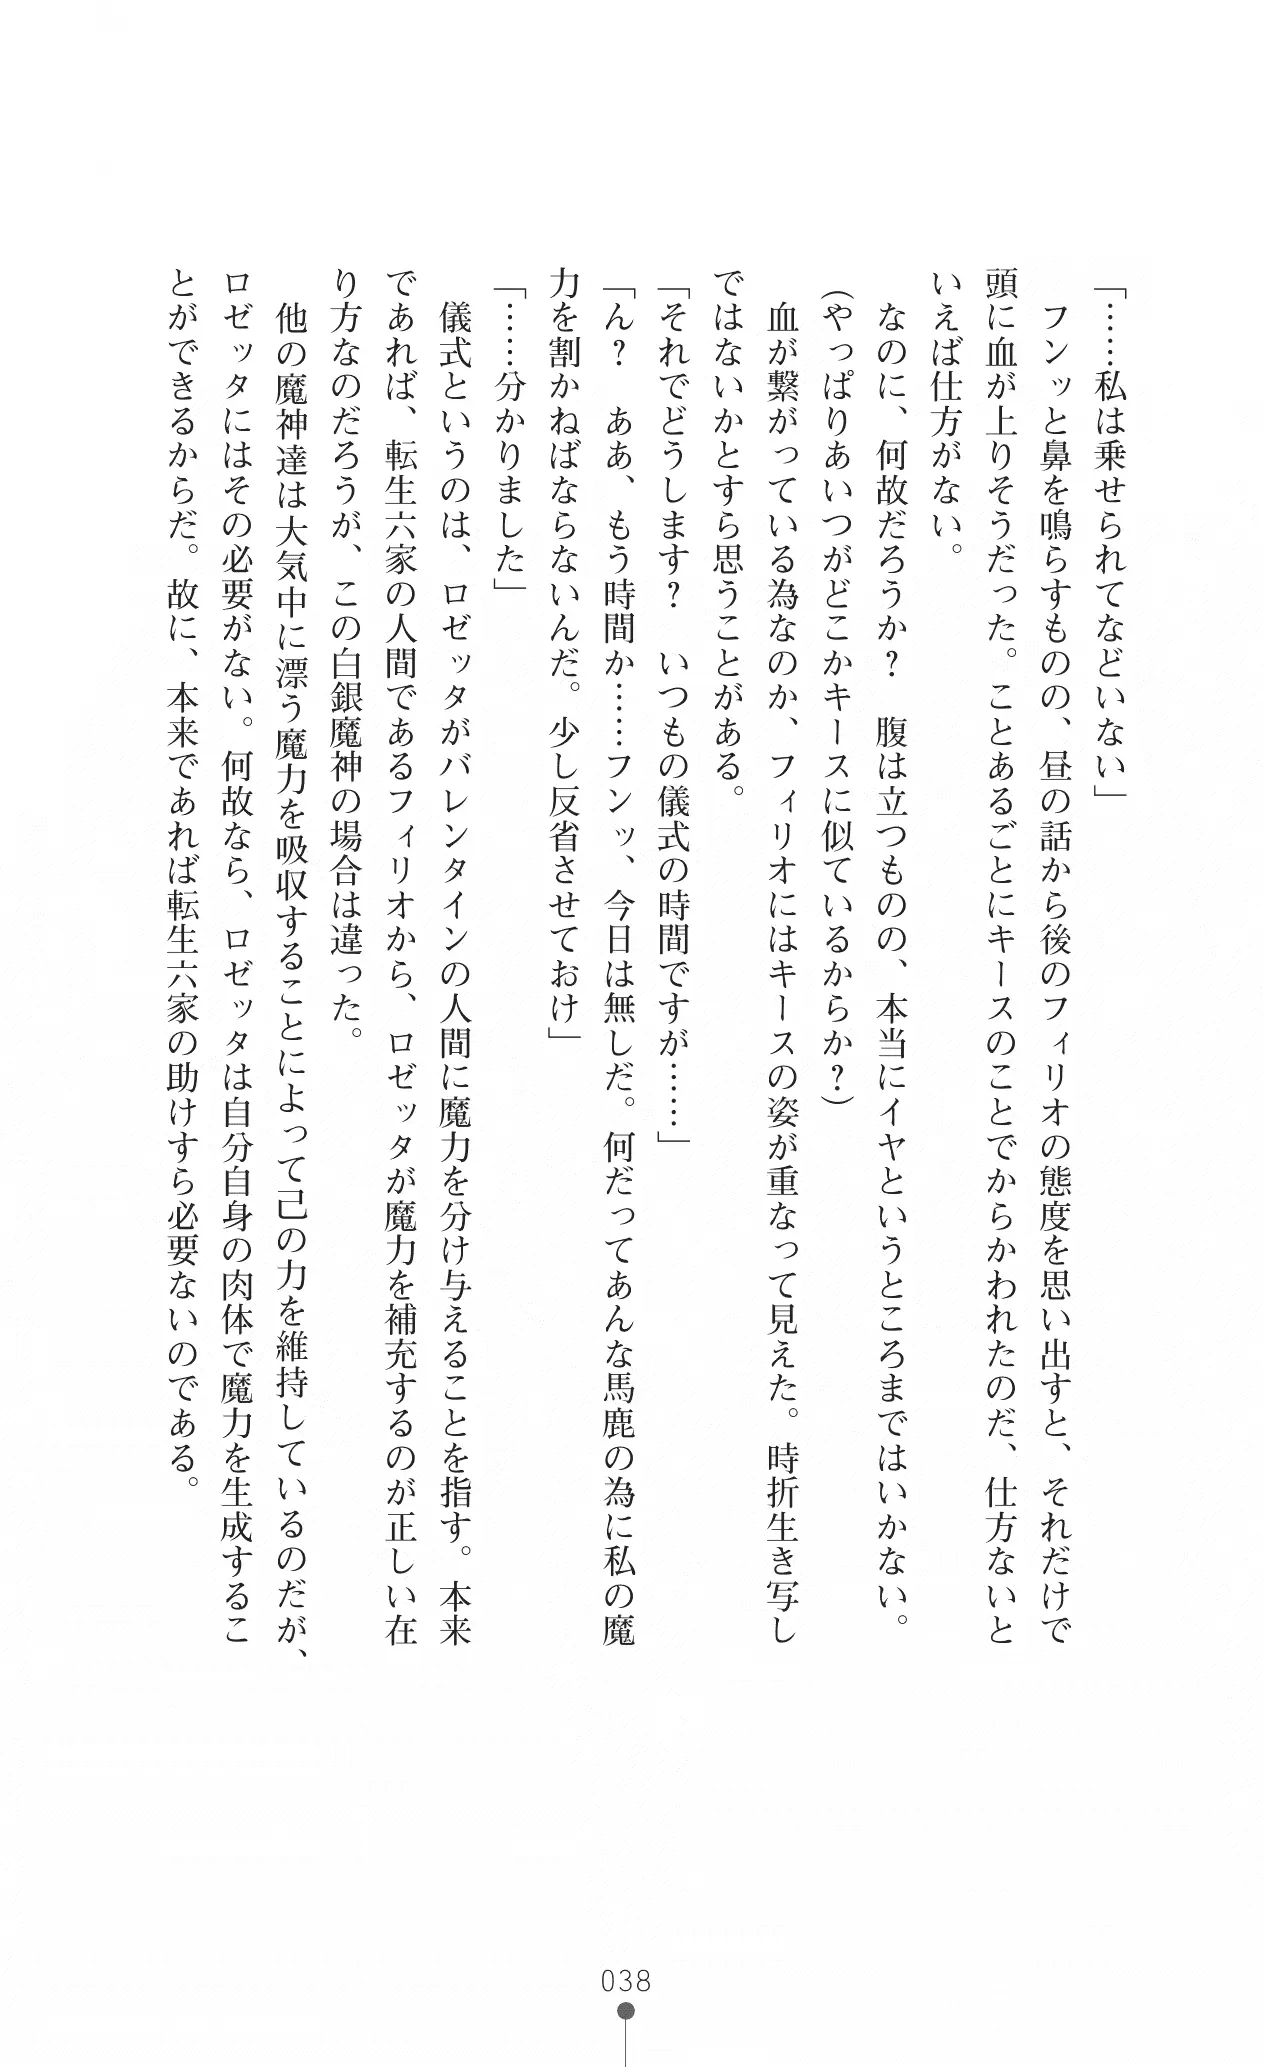 「……私は乗せられてなどいない」
　フンッと鼻を鳴らすものの、昼の話から後のフィリオの態度を思い出すと、それだけで
頭に血が上りそうだった。ことあるごとにキースのことでからかわれたのだ、仕方ないと
いえば仕方がない。
　なのに、何故だろうか？　腹は立つものの、本当にイヤというところまではいかない。
（やっぱりあいつがどこかキースに似ているからか？）
　血が繋がっている為なのか、フィリオにはキースの姿が重なって見えた。時折生き写し
ではないかとすら思うことがある。
「それでどうします？　いつもの儀式の時間ですが……」
「ん？　ああ、もう時間か……フンッ、今日は無しだ。何だってあんな馬鹿の為に私の魔
力を割かねばならないんだ。少し反省させておけ」
「……分かりました」
　儀式というのは、ロゼッタがバレンタインの人間に魔力を分け与えることを指す。本来
であれば、転生六家の人間であるフィリオから、ロゼッタが魔力を補充するのが正しい在
り方なのだろうが、この白銀魔神の場合は違った。
　他の魔神達は大気中に漂う魔力を吸収することによって己の力を維持しているのだが、
ロゼッタにはその必要がない。何故なら、ロゼッタは自分自身の肉体で魔力を生成するこ
とができるからだ。故に、本来であれば転生六家の助けすら必要ないのである。
038